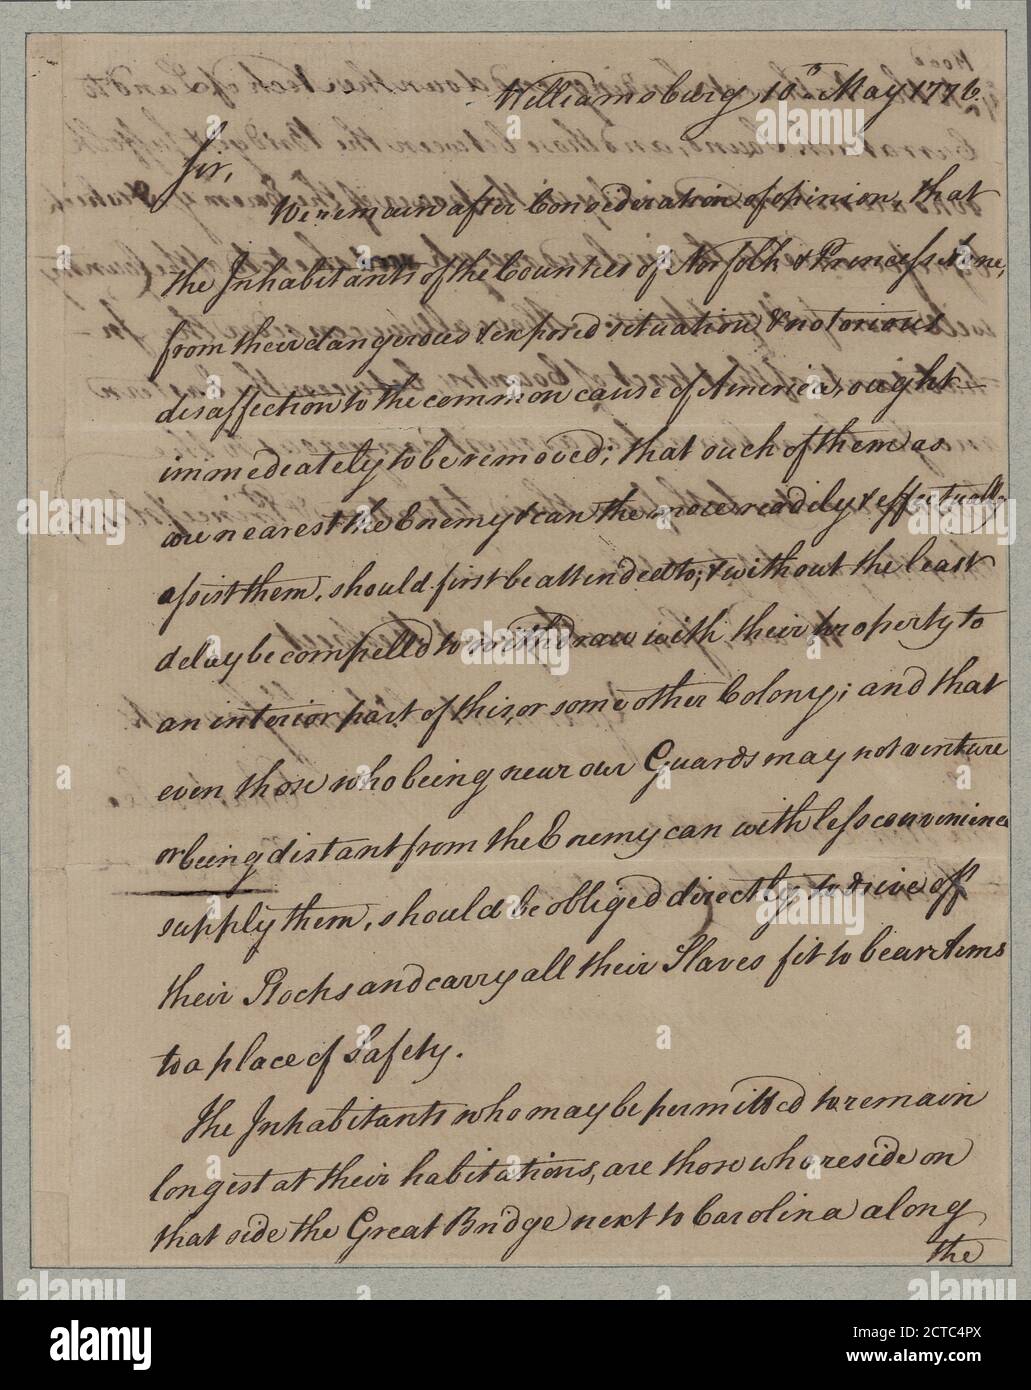 Williamsburg 10th May 1776.
Sir,
We remain after Consideration of opinion, that
the Inhabitants of the Counties of Norfolk & Princess Anne,
from their dangerous & exposed situation & notorious
disaffection to the common cause of America, ought
immediately to be removed; that such of them as
are nearest the Enemy & can the more readily & effectually
assist them, should first be attended to; & without the least
delay be compelld to withdraw with their property to
an interior part of this, or some other Colony; and that
even those who being near our Guards may not venture
or being distant from the Enemy can with less convenience
supply them, should be obliged directly to drive off
their Stocks and carry all their Slaves fit to bear Arms
to a place of Safety.
The Inhabitants who may be permitted to remain
longest at their habitations, are those who reside on
that side the Great Bridge next to Carolina along
the
alamy
Image ID: 2CTC4PX
www.alamy.com